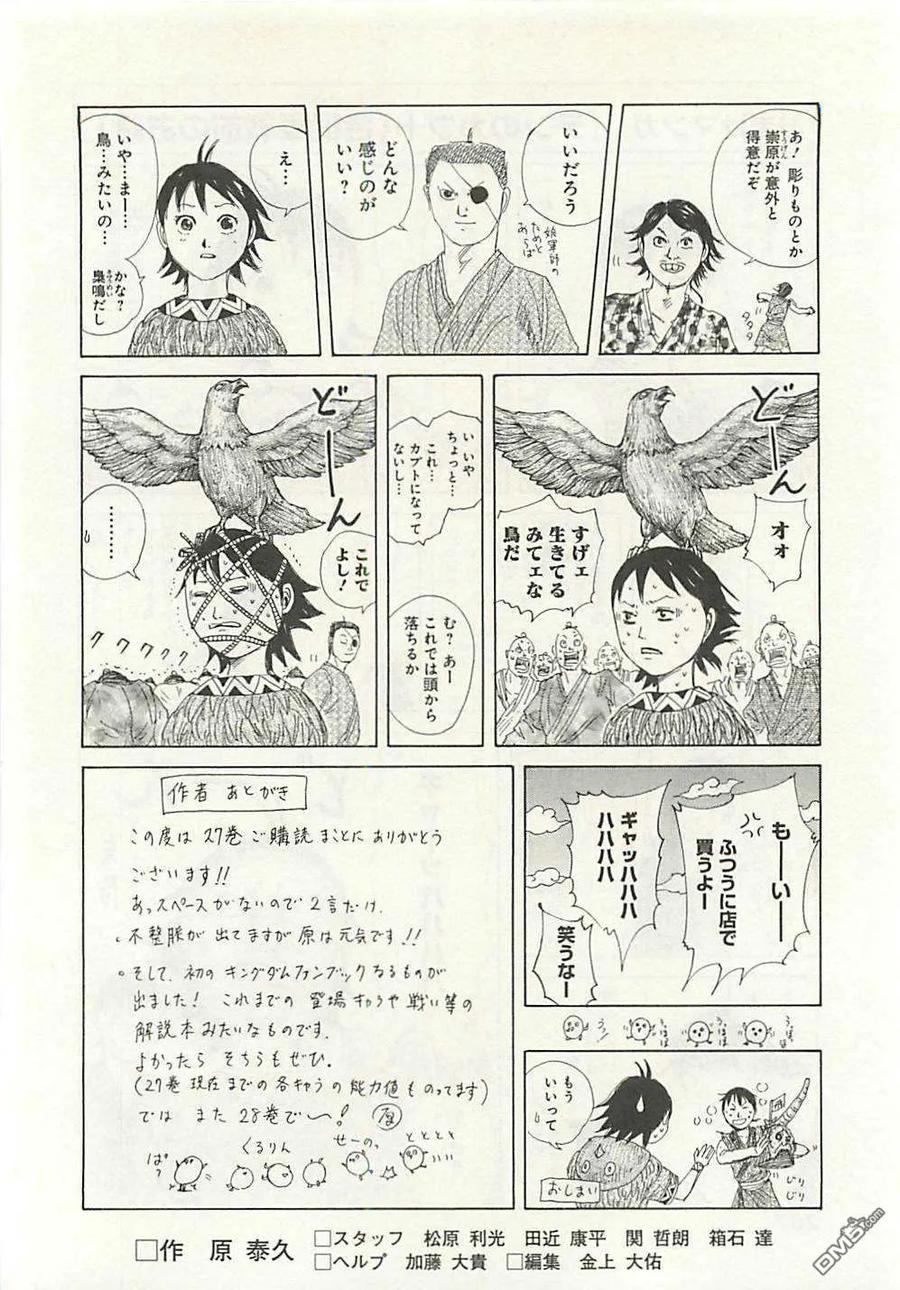 あ！彫りものとか
崇原が意外と
得意だぞ
タタタ
いいだろう
娘軍師の
ためと
あらば
どんな
感じのが
いい？
え…
いや…まー…
鳥…みたいの…
かな？
梟鳴だし
どーん
オォ
すげェ
生きてる
みてェな
鳥だ
い いや
ちょっと…
これ…
カブトになって
ないし…
む？あー
これでは頭から
落ちるか
どーん
これで
よし！
…………
ククククッ
もーいー
ふつうに店で
買うよー
ギャッハハハ
ハハハハ
笑うなー
もう
いいって
じり
じり
おしまい
作者 あとがき
この度は27巻ご購読まことにありがとう
ございます!!
あっスペースがないので2言だけ、
。不整脈が出てますが原は元気です!!
。そして、初のキングダムファンブックなるものが
出ました！これまでの登場キャラや戦い等の
解説本みたいなものです。
よかったらそちらもぜひ。
(27巻現在までの各キャラの能力値ものってます)
では また28巻で〜！
ぱ？
くるりん
せーのっ
とととと
□作 原 泰久
□スタッフ 松原 利光 田近 康平 関 哲朗 箱石 達
□ヘルプ 加藤 大貴 □編集 金上 大佑